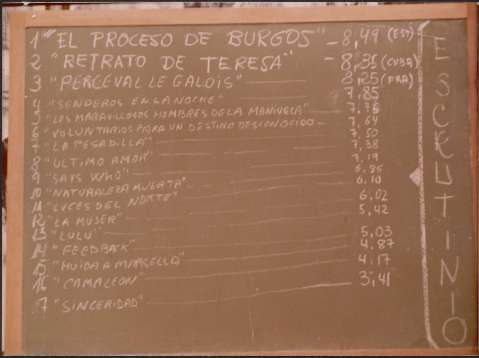 1 "EL PROCESO DE BURGOS" - 8,49 (EST)
2 "RETRATO DE TERESA" - 8,31 (CUBA)
3 "PERCEVAL LE GALOIS" 8,25 (FRA)
4 "SENDEROS EN LA NOCHE" 7,85
5 "LOS MARAVILLOSOS HOMBRES DE LA MANIVELA" 7,75
6 "VOLUNTARIOS PARA UN DESTINO DESCONOCIDO" 7,64
7 "LA PESADILLA" 7,50
8 "ULTIMO AMOR" 7,38
9 "SAYS WHO" 7,19
10 "NATURALEZA MUERTA" 6,85
11 "LUCES DEL NORTE" 6,10
12 "LA MUJER" 6,02
13 "LULU" 5,42
14 "FEEDBACK" 5,03
15 "HUIDA A MARSELLA" 4,87
16 "CAMALEON" 4,17
17 "SINCERIDAD" 3,41
ESCRUTINIO